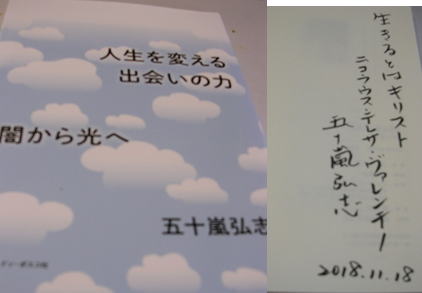 人生を変える
出会いの力
闇から光へ
五十嵐弘志
生きるとはキリスト
ニコラウス・テレサ・ヴァレンチノ
五十嵐弘志
2018.11.18